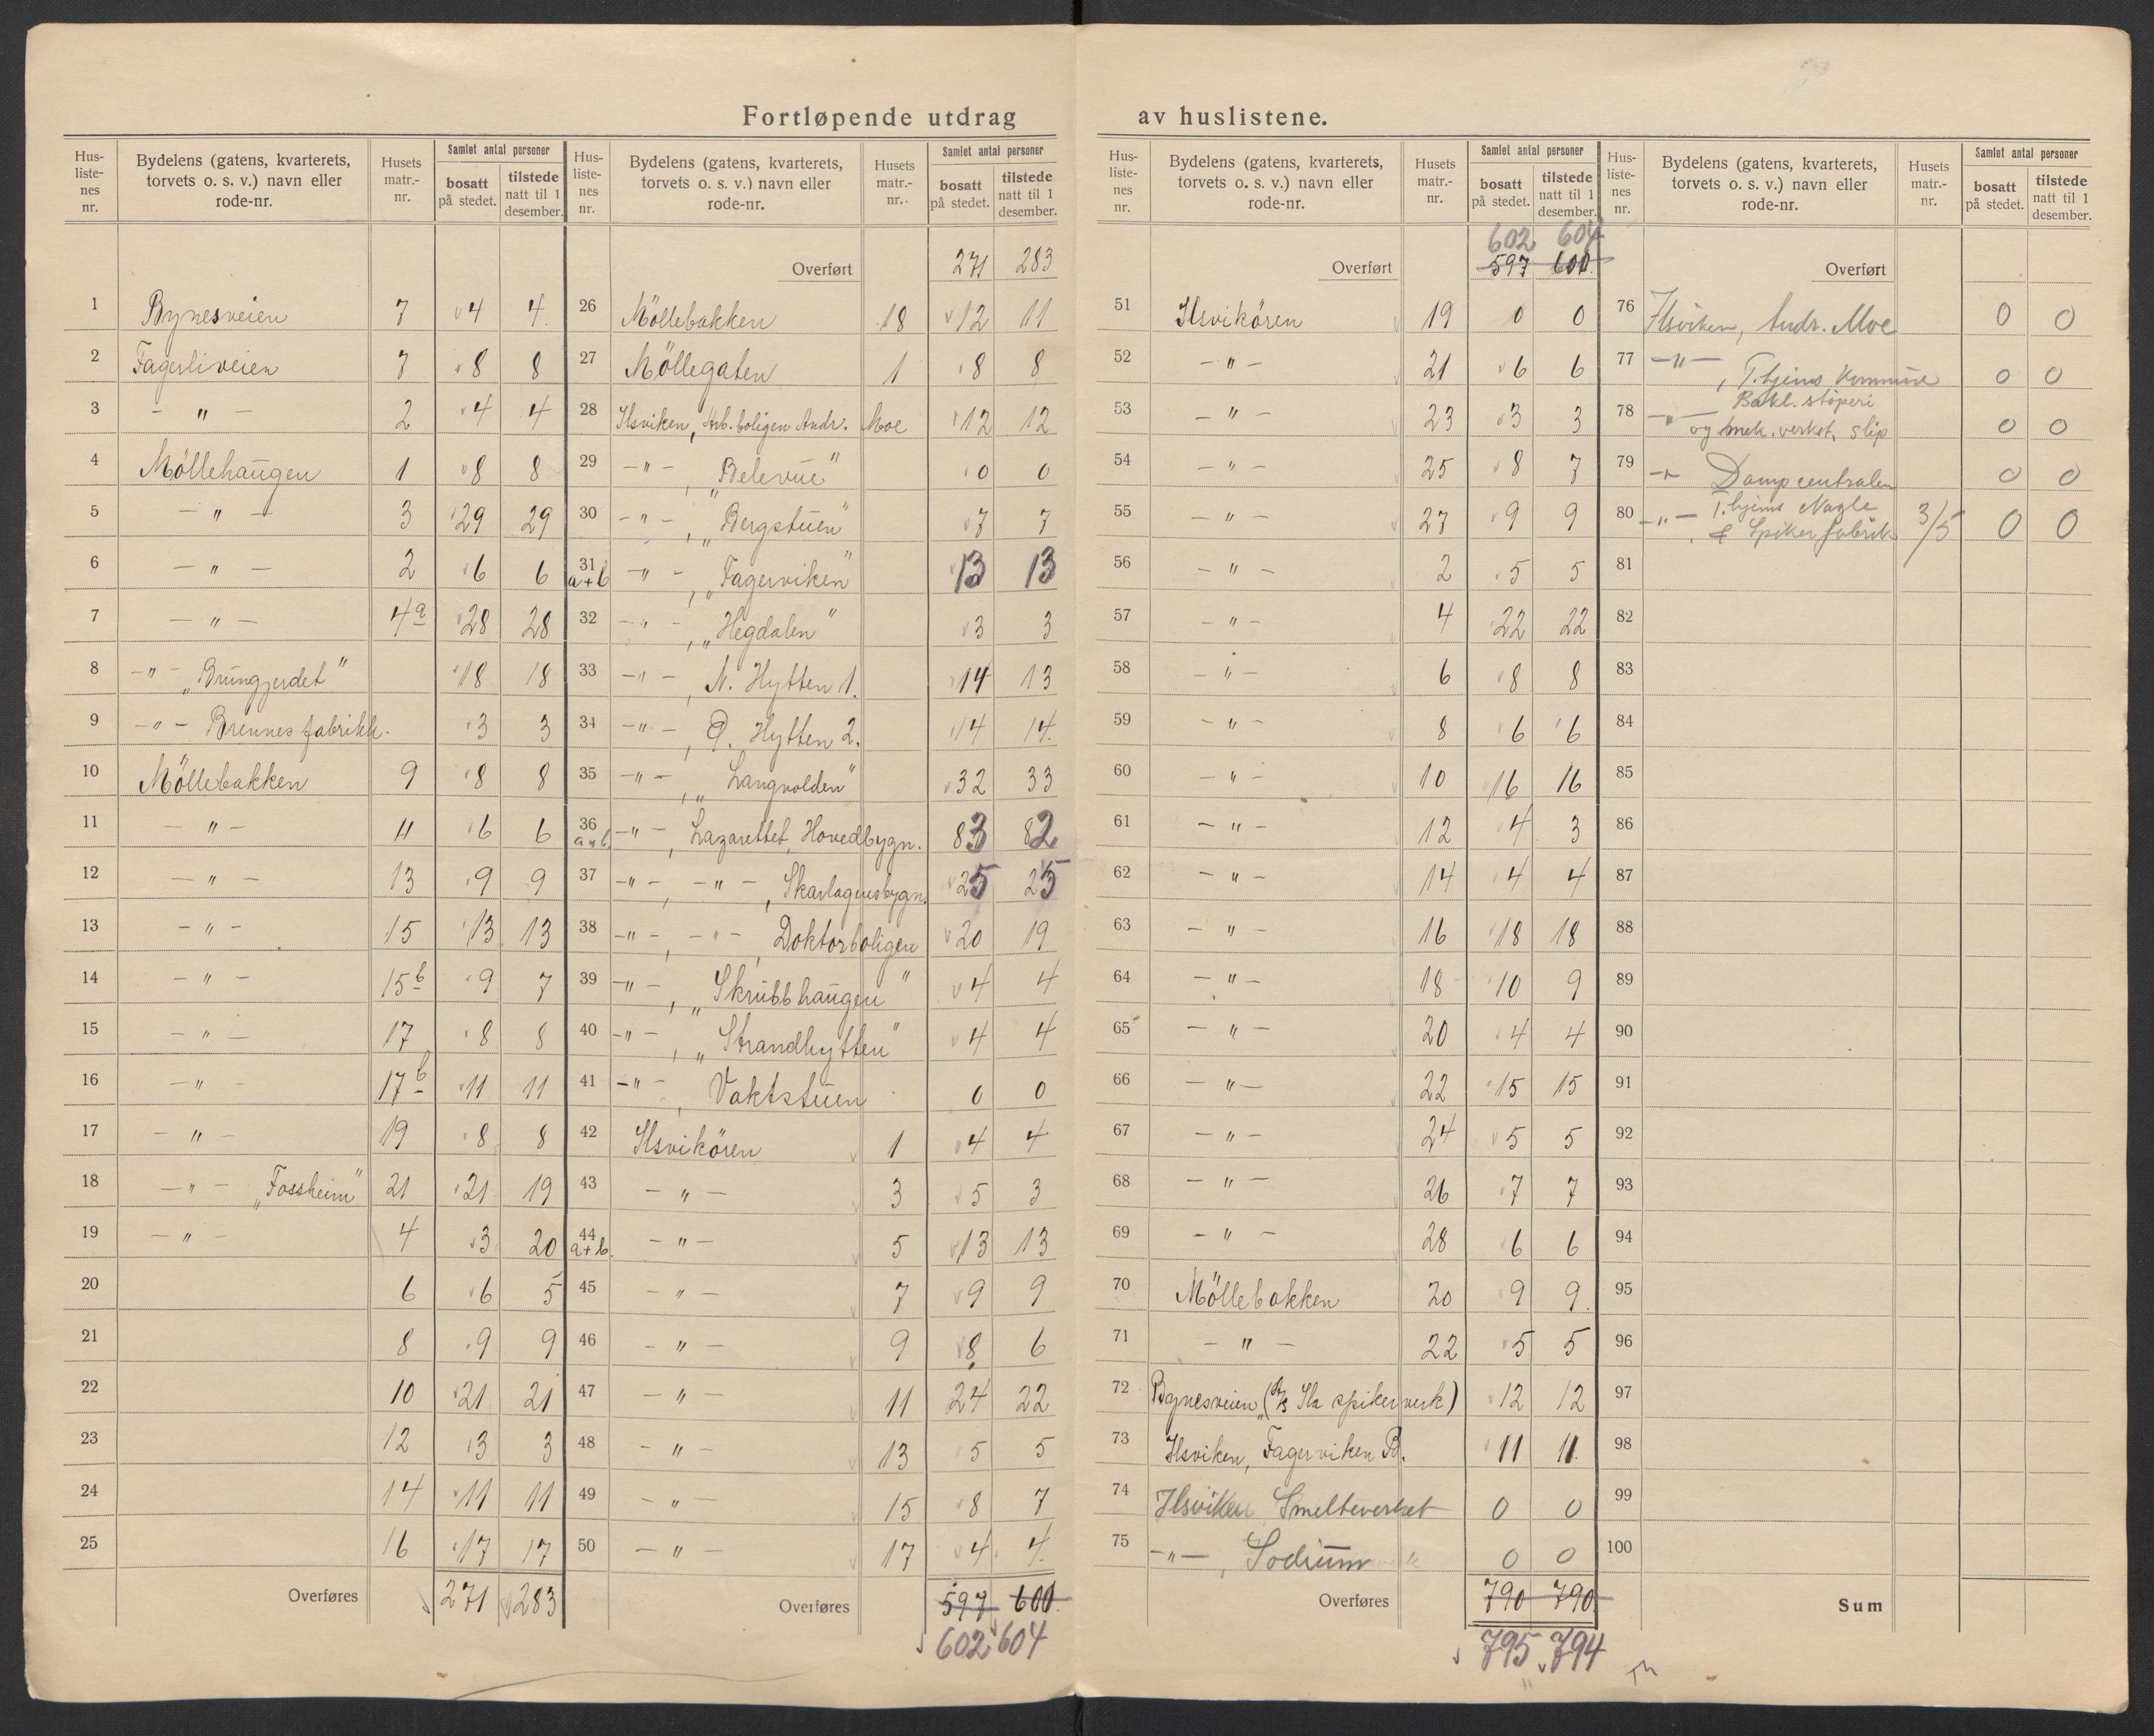 Fortløpende utdrag av huslistene.
Hus-liste-nes nr. | Bydelens (gatens, kvarterets, torvets o. s. v.) navn eller rode-nr. | Husets matr.-nr. | Samlet antal personer | bosatt på stedet. | tilstede natt til 1 desember.
1 Bynesveien 7 4 4
2 Fagerliveien 7 8 8
3 - " - 2 4 4
4 Möllehaugen 1 8 8
5 - " - 3 29 29
6 - " - 2 6 6
7 - " - 4a 28 28
8 - " - „Brungjerdet" 18 18
9 - " - Brennes fabrikk. 3 3
10 Möllebakken 9 8 8
11 - " - 11 6 6
12 - " - 13 9 9
13 - " - 15 13 13
14 - " - 15b 9 7
15 - " - 17 8 8
16 - " - 17b 11 11
17 - " - 19 8 8
18 - " - „Fossheim" 21 21 19
19 - " - 4 3 20
20 6 6 5
21 8 9 9
22 10 21 21
23 12 3 3
24 14 11 11
25 16 17 17
Overføres 271 283
Hus-liste-nes nr. | Bydelens (gatens, kvarterets, torvets o. s. v.) navn eller rode-nr. | Husets matr.-nr. | Samlet antal personer | bosatt på stedet. | tilstede natt til 1 desember.
Overført 271 283
26 Möllebakken 18 12 11
27 Möllegaten 1 8 8
28 Ilsviken, Arb.boligen Andr. Moe 12 12
29 - " - , „Belevue" 0 0
30 - " - , „Bergstuen" 7 7
31 a+b - " - , „Fagerviken" 13 13
32 - " - , „Hegdalen" 3 3
33 - " - , N. Hytten 1. 14 13
34 - " - , Ø. Hytten 2. 14 14.
35 - " - , „Langvolden" 32 33
36 a+b. - " - , Lazarettet, Hovedbygn. 83 82
37 - " - , - " - , Skarlagensbygn. 25 25
38 - " - , - " - , Doktorboligen 20 19
39 - " - , „Skrubbhaugen" 4 4
40 - " - , „Strandhytten" 4 4
41 - " - , Vaktstuen 0 0
42 Ilsvikören 1 4 4
43 - " - 3 5 3
44 a+b. - " - 5 13 13
45 - " - 7 9 9
46 - " - 9 8 6
47 - " - 11 24 22
48 - " - 13 5 5
49 - " - 15 8 7
50 - " - 17 4 4.
Overføres 597 600
602 604
Hus-liste-nes nr. | Bydelens (gatens, kvarterets, torvets o. s. v.) navn eller rode-nr. | Husets matr.-nr. | Samlet antal personer | bosatt på stedet. | tilstede natt til 1 desember.
602 604
Overført 597 600.
51 Ilsvikören 19 0 0
52 - " - 21 6 6
53 - " - 23 3 3
54 - " - 25 8 7
55 - " - 27 9 9
56 - " - 2 5 5
57 - " - 4 22 22
58 - " - 6 8 8
59 - " - 8 6 6
60 - " - 10 16 16
61 - " - 12 4 3
62 - " - 14 4 4
63 - " - 16 18 18
64 - " - 18 10 9
65 - " - 20 4 4
66 - " - 22 15 15
67 - " - 24 5 5
68 - " - 26 7 7
69 - " - 28 6 6
70 Möllebakken 20 9 9.
71 - " - 22 5 5
72 Bynesveien, (A/S Ila spikerverk) 12 12
73 Ilsviken, Fagerviken B. 11 11.
74 Ilsviken Smelteverket 0 0
75 - " - , Sodium 0 0
Overføres 790 790.
795 794
Hus-liste-nes nr. | Bydelens (gatens, kvarterets, torvets o. s. v.) navn eller rode-nr. | Husets matr.-nr. | Samlet antal personer | bosatt på stedet. | tilstede natt til 1 desember.
Overført
76 Ilsviken, Andr. Moe 0 0
77 - " - , T.hjems Kommune 0 0
78 - " - Bakl. stöperi
og mek. verkst. slip 0 0
79 - " - Dampcentralen 0 0
80 - " - , T.hjems Nagle
& Spikerfabrik 3/5 0 0
81
82
83
84
85
86
87
88
89
90
91
92
93
94
95
96
97
98
99
100
Sum